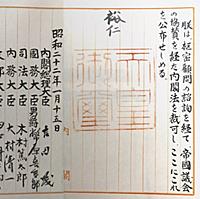 朕は、枢密顧問の諮詢を経て、帝国議会
の協賛を経た内閣法を裁可し、ここにこれ
を公布せしめる。
裕仁
天皇
御璽
昭和二十二年一月十五日
内閣総理大臣 吉田茂
国務大臣 男爵幣原喜重郎
司法大臣 木村篤太郎
内務大臣 大村清一